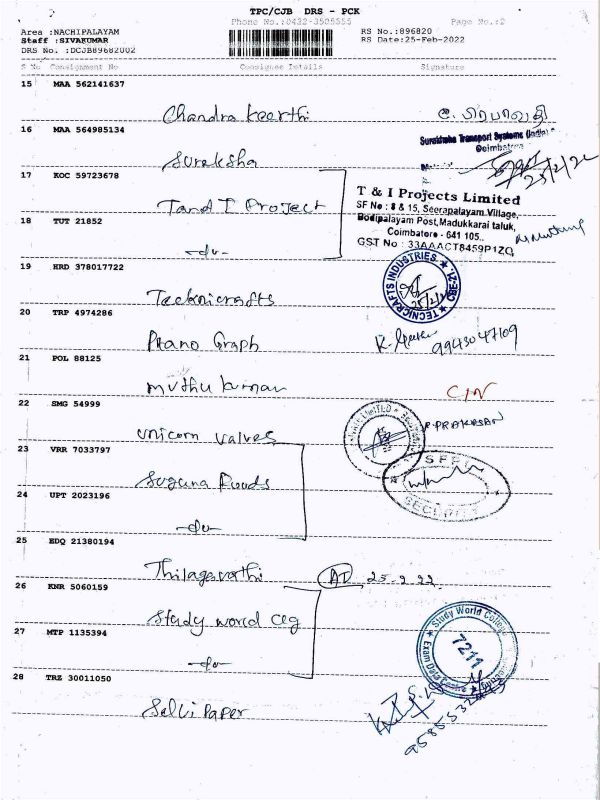 TPC/CJB DRS - PCK
Phone No.:0432-3505555 Page No.:2
Area :NACHIPALAYAM RS No.:896820
Staff :SIVAKUMAR RS Date:25-Feb-2022
DRS No. :DCJB89682002
S No Consignment No Consignee Details Signature
15 MAA 562141637
Chandra Keerthi
16 MAA 564985134
Suraksha Transport Systems (India)
Coimbatore
Suraksha
25/2/22
17 KOC 59723678
T & I Projects Limited
SF No : 8 & 15, Seerapalayam Village,
Tand I Project
Bodipalayam Post, Madukkarai taluk,
18 TUT 21852
Coimbatore - 641 105.
GST No : 33AAACT8459P1ZQ
-do-
19 HRD 378017722
TECNICRAFTS INDUSTRIES
CBE-21
Tecknicrafts
20 TRP 4974286
Phano Graph
9943047109
21 POL 88125
Muthu kumar
22 SMG 54999
P. PRAKASAN
Unicorn Valves
23 VRR 7033797
SECURITY
Suguna Foods
24 UPT 2023196
-do-
25 EDQ 21380194
Thilagavathi 25.2.22
26 KNR 5060159
Study world
Study World College
7211
27 MTP 1135394
-do-
28 TRZ 30011050
Selvi Paper